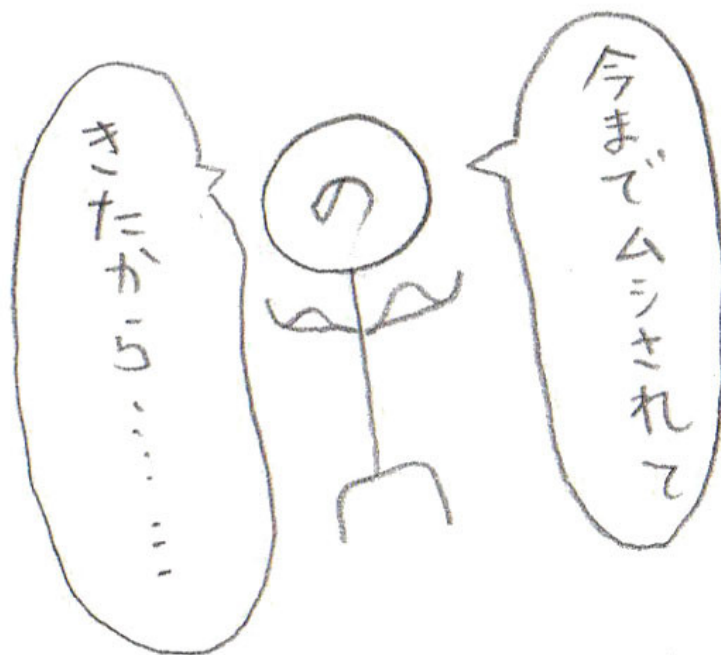 今までムシされて
の
きたから……